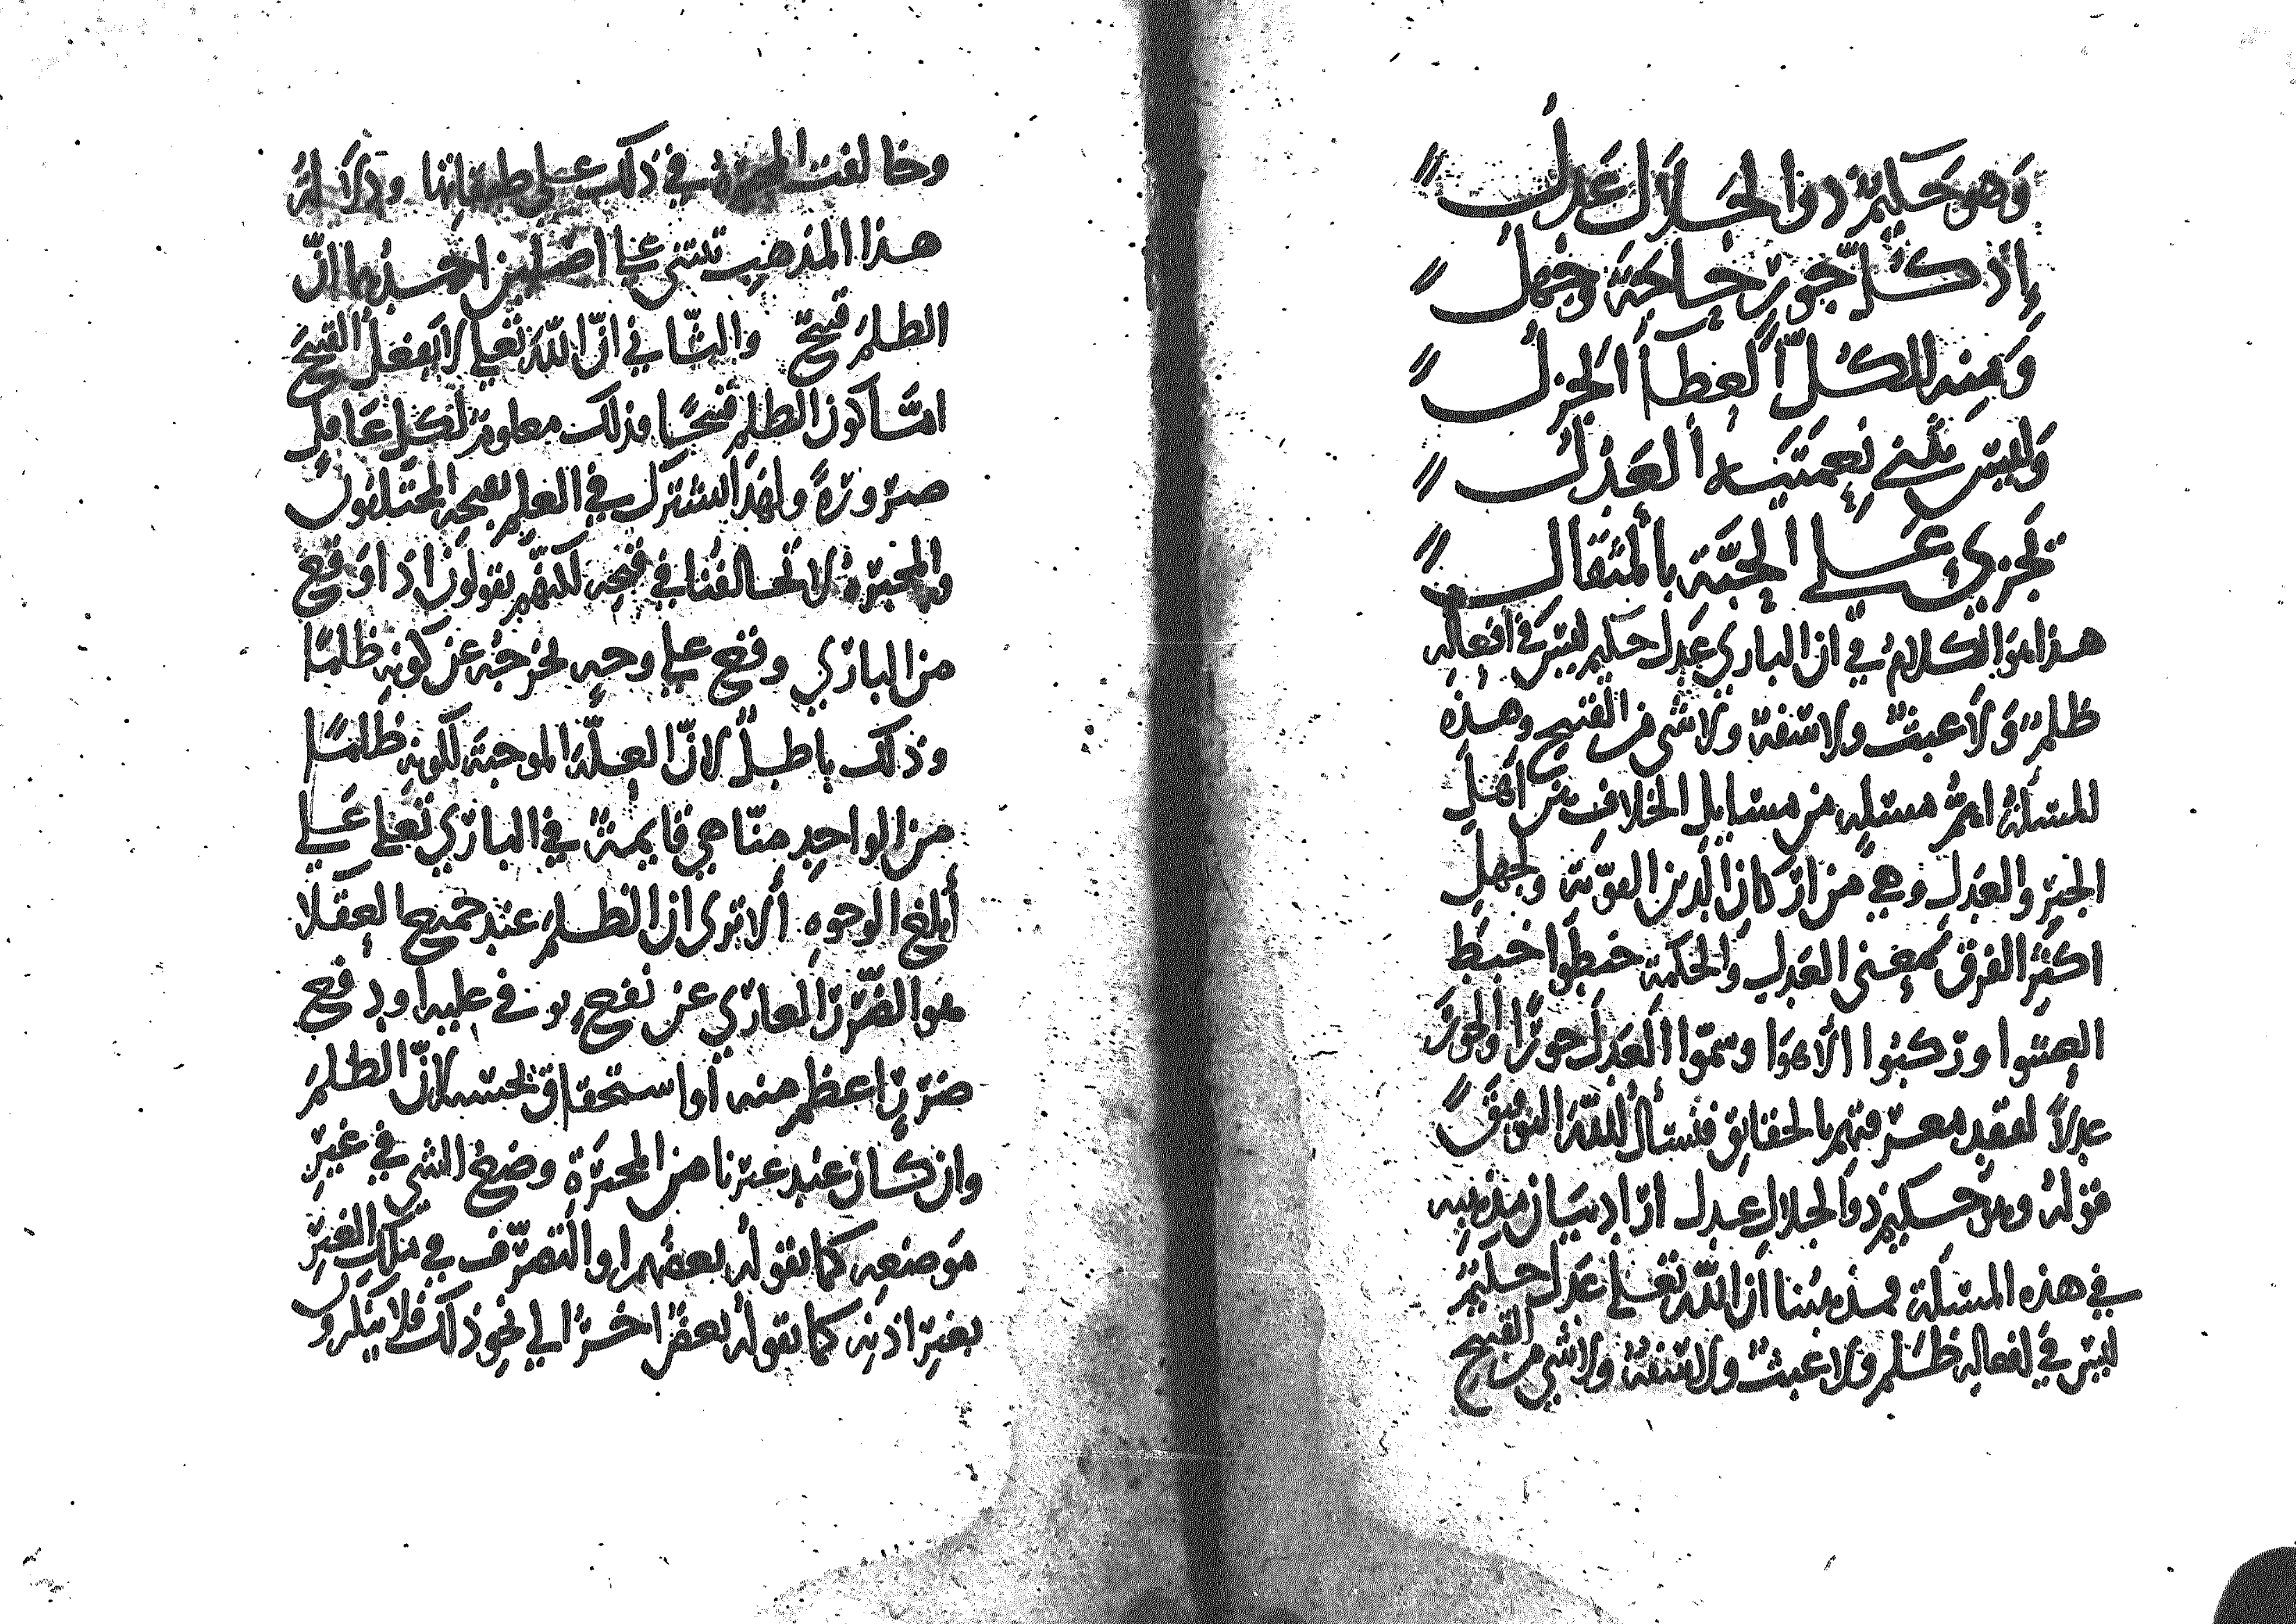 وَهو حَكيمٌ ذوا الجَلال عَدلُ
إذ كُلّ جورٍ حاجَةٌ وجهلُ
وَمِنه للكُلّ العطآ الجَزلُ
وَليس يثني نِعمَتَيه العَذلُ
تجزي على الحَبَّة بالمثقال
هذا هوَ الكلامُ في ان الباري عَدل حكيم ليسَ في افعاله
ظلمٌ وَلاَ عبثٌ ولا سَفهٌ ولا شي من القبيح وهذه
المسئلة اهمُّ مسئله من مسايل الخلاف بين اهلِ
الجبرِ والعَدلِ وهي من اركان الدين القويّة ولجهل
اكثر الفرق بمعنى العَدلِ والحكمة خبطوا خبط
العشوا وركبوا الأهوَا وسَمّوا العَدلَ جورًا والجورَ
عدلاً لفقد معرفتهم بالحقايق فنسأل اللّه التوفيقَ
قوله وهوَ حكيم ذو الجلال عدل ارَاد بيَان مذهبه
في هذه المسئلة فمذهبنا أن اللّه تعالى عَدل حكيمٌ
ليسَ في افعاله ظلم ولا عبثٌ ولا سَفهٌ ولا شي من القبيح
وخالفت المجبرَةُ في ذلك على طبقاتها ودلالةُ
هذا المذهب تنبني على اصلين احدُهما انّ
الظلمَ قبيحٌ والثّاني انّ اللّه تعالى لا يفعل القبيحَ
امَّا كون الظلم قبيحًا فذلك معلومٌ لكل عَاقلٍ
ضرورَةً ولهذا اشترك في العلم بقبحِه المختلفون
والمجبرَةُ لا تخالفُنا في قبحِه لكنّهم يقولون اذا وَقع
من الباري وقع على وجهٍ يخرجهُ عن كونِه ظلمًا
وذلك باطلٌ لانّ العلّة الموجبَة لكونِه ظلمًا
من الواحدِ منّا هي قايمةٌ في الباري تعَالى عَلى
أبلغ الوجوه ألا ترى ان الظلم عند جميع العقلا
هو الضّررُ العاري عن نفعٍ يوفي عليه او دفع
ضررٍ اعظم منه أو استحقاق لحسنه لانّ الظلمَ
وان كان عند غيرنا من المجبَرة وضعُ الشي في غيرِ
مَوضعِه كما يقوله بعضُهم او التصرّف في ملكِ الغيرِ
بغيرِ اذنِه كما يقوله بعضٌ اخرُ الى نحو ذلك فلا ينكرون